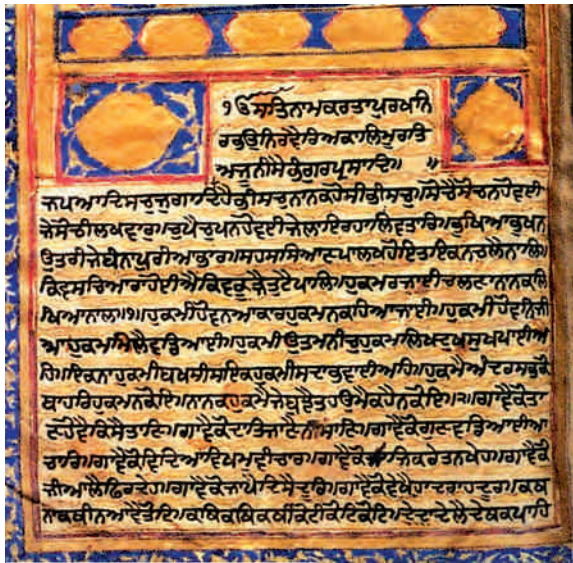 ੴਸਤਿਨਾਮੁਕਰਤਾਪੁਰਖਨਿ
ਰਭਉਨਿਰਵੈਰਿਅਕਾਲਿਮੂਰਤਿ
ਅਜੂਨੀਸੈਭੰਗੁਰਪ੍ਰਸਾਦਿ॥ ॥
ਜਪੁਆਦਿਸਚੁਜੁਗਾਦਿਹੈਭੀਸਚੁਨਾਨਕਹੋਸੀਭੀਸਚੁ॥ਸੋਚੈਸੋਚਨਹੋਵਈ
ਜੇਸੋਚੀਲਖਵਾਰ॥ਚੁਪੈਚੁਪਨਹੋਵਈਜੇਲਾਇਰਹਾਲਿਵਤਾਰਿ॥ਭੁਖਿਆਭੁਖਨ
ਉਤਰੀਜੇਬੰਨਾਪੁਰੀਆਭਾਰ॥ਸਹਸਸਿਆਣਪਾਲਖਹੋਇਤਇਕਨਚਲੈਨਾਲਿ॥
ਕਿਵਸਚਿਆਰਾਹੋਈਐਕਿਵਕੂੜੈਤੁਟੈਪਾਲਿ॥ਹੁਕਮਰਜਾਈਚਲਣਾਨਾਨਕਲਿ
ਖਿਆਨਾਲਿ॥੧॥ਹੁਕਮੀਹੋਵਨਆਕਾਰਹੁਕਮਨਕਹਿਆਜਾਈ॥ਹੁਕਮੀਹੋਵਨਿਜੀ
ਆਹੁਕਮਮਿਲੈਵਡਿਆਈ॥ਹੁਕਮੀਉਤਮਨੀਚੁਹੁਕਮਲਿਖਦੁਖਸੁਖਪਾਈਅ
ਹਿ॥ਇਕਨਾਹੁਕਮੀਬਖਸੀਸਇਕਹੁਕਮੀਸਦਾਭਵਾਈਅਹਿ॥ਹੁਕਮੈਅੰਦਰਸਭੁਕੋ
ਬਾਹਰਿਹੁਕਮਨਕੋਇ॥ਨਾਨਕਹੁਕਮੈਜੇਬੁਝੈਤਹਉਮੈਕਹੈਨਕੋਇ॥੨॥ਗਾਵੈਕੋਤਾ
ਣਹੋਵੈਕਿਸੈਤਾਣਿ॥ਗਾਵੈਕੋਦਾਤਿਜਾਣੈਨੀਸਾਣਿ॥ਗਾਵੈਕੋਗੁਣਵਡਿਆਈਆ
ਚਾਰਿ॥ਗਾਵੈਕੋਵਿਦਿਆਵਿਖਮੁਵੀਚਾਰ॥ਗਾਵੈਕੋਸਾਜਿਕਰੇਤਨਖੇਹ॥ਗਾਵੈਕੋ
ਜੀਆਲੈਫਿਰਿਦੇਹ॥ਗਾਵੈਕੋਜਾਪੈਦਿਸੈਦੂਰਿ॥ਗਾਵੈਕੋਵੇਖੈਹਾਦਰਾਹਦੂਰ॥ਕਥ
ਨਾਕਥੀਨਆਵੈਤੋਟਿ॥ਕਥਿਕਥਿਕਥੀਕੋਟੀਕੋਟਿਕੋਟਿ॥ਦੇਦਾਦੇਲੈਦੇਥਕਪਾਹਿ